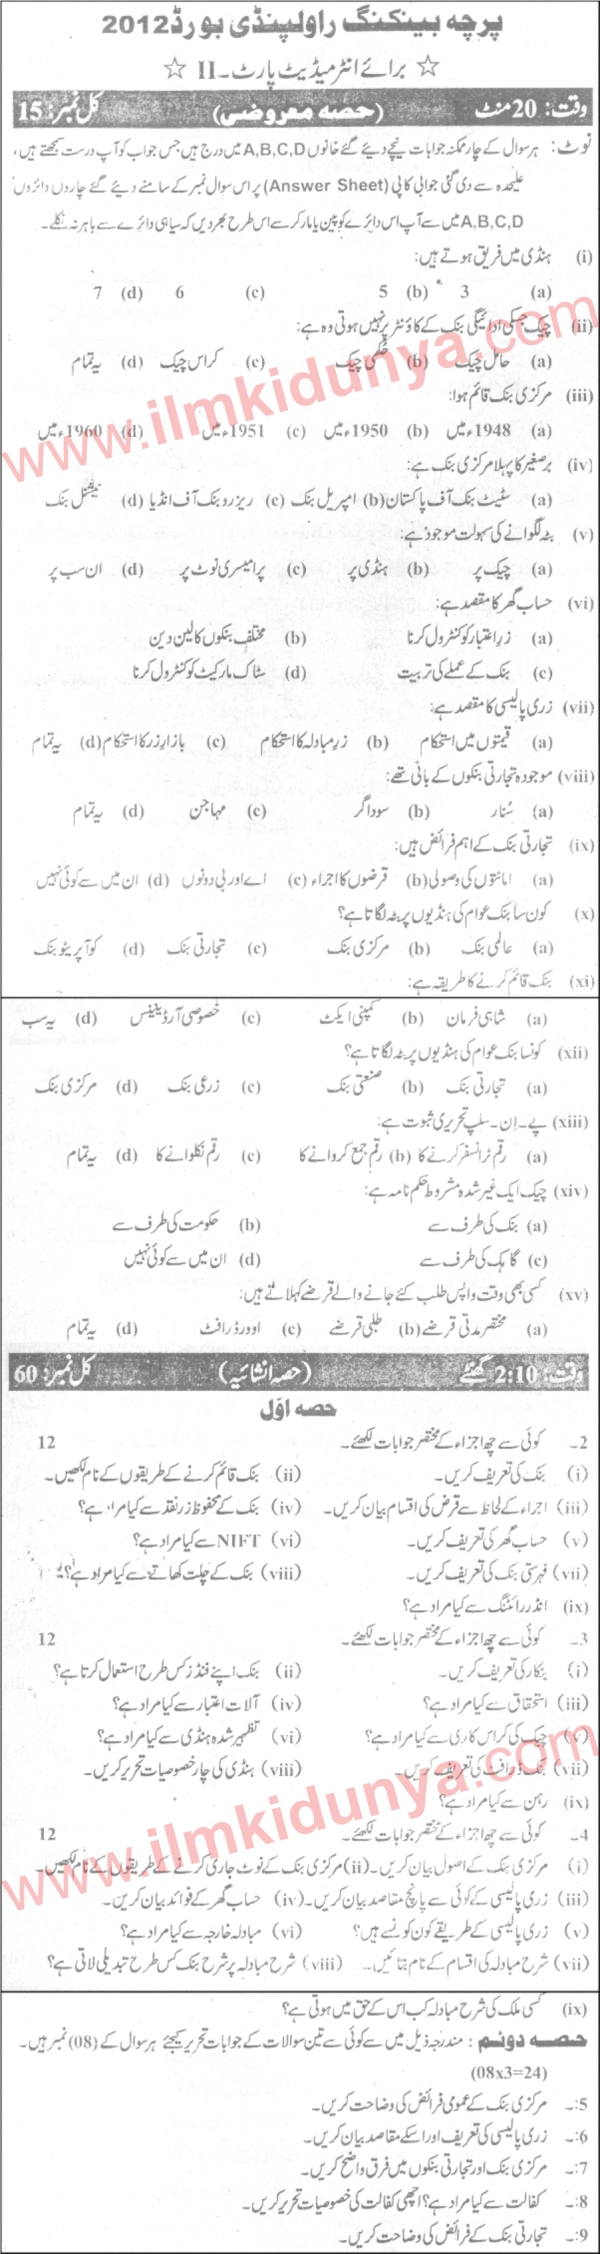 پرچہ بینکنگ راولپنڈی بورڈ 2012
☆ برائے انٹرمیڈیٹ پارٹ - II ☆
وقت: 20 منٹ (حصہ معروضی) کل نمبر: 15
نوٹ: ہر سوال کے چار ممکنہ جوابات نیچے دیئے گئے خانوں A,B,C,D میں درج ہیں جس جواب کو آپ درست سمجھتے ہیں،
علیحدہ سے دی گئی جوابی کاپی (Answer Sheet) پر اس سوال نمبر کے سامنے دیئے گئے چاروں دائروں
A,B,C,D میں سے آپ اس دائرے کو پین یا مارکر سے اس طرح بھر دیں کہ سیاہی دائرے سے باہر نہ نکلے۔
(i) ہنڈی میں فریق ہوتے ہیں:
(a) 3 (b) 5 (c) 6 (d) 7
(ii) چیک جسکی ادائیگی بنک کے کاؤنٹر پر نہیں ہوتی وہ ہے:
(a) حامل چیک (b) حُکمی چیک (c) کراس چیک (d) یہ تمام
(iii) مرکزی بنک قائم ہوا:
(a) 1948ء میں (b) 1950ء میں (c) 1951ء میں (d) 1960ء میں
(iv) برصغیر کا پہلا مرکزی بنک ہے:
(a) سٹیٹ بنک آف پاکستان (b) امپریل بنک (c) ریزرو بنک آف انڈیا (d) نیشنل بنک
(v) بٹہ لگوانے کی سہولت موجود ہے:
(a) چیک پر (b) ہنڈی پر (c) پرامیسری نوٹ پر (d) ان سب پر
(vi) حساب گھر کا مقصد ہے:
(a) زرِ اعتبار کو کنٹرول کرنا (b) مختلف بنکوں کا لین دین
(c) بنک کے عملے کی تربیت (d) سٹاک مارکیٹ کو کنٹرول کرنا
(vii) زری پالیسی کا مقصد ہے:
(a) قیمتوں میں استحکام (b) زرِ مبادلہ کا استحکام (c) بازارِ زر کا استحکام (d) یہ تمام
(viii) موجودہ تجارتی بنکوں کے بانی تھے:
(a) سُنار (b) سوداگر (c) مہاجن (d) یہ تمام
(ix) تجارتی بنک کے اہم فرائض ہیں:
(a) امانتوں کی وصولی (b) قرضوں کا اجراء (c) اے اور بی دونوں (d) ان میں سے کوئی نہیں
(x) کون سا بنک عوام کی ہنڈیوں پر بٹہ لگاتا ہے؟
(a) عالمی بنک (b) مرکزی بنک (c) تجارتی بنک (d) کوآپریٹو بنک
(xi) بنک قائم کرنے کا طریقہ ہے:
(a) شاہی فرمان (b) کمپنی ایکٹ (c) خصوصی آرڈیننس (d) یہ سب
(xii) کونسا بنک عوام کی ہنڈیوں پر بٹہ لگاتا ہے؟
(a) تجارتی بنک (b) صنعتی بنک (c) زرعی بنک (d) مرکزی بنک
(xiii) پے-اِن-سلپ تحریری ثبوت ہے:
(a) رقم ٹرانسفر کرنے کا (b) رقم جمع کروانے کا (c) رقم نکلوانے کا (d) یہ تمام
(xiv) چیک ایک غیر شدہ مشروط حکم نامہ ہے:
(a) بنک کی طرف سے (b) حکومت کی طرف سے
(c) گاہک کی طرف سے (d) ان میں سے کوئی نہیں
(xv) کسی بھی وقت واپس طلب کئے جانے والے قرضے کہلاتے ہیں:
(a) مختصر مدتی قرضے (b) طلبی قرضے (c) اوورڈرافٹ (d) یہ تمام
وقت: 2:10 گھنٹے (حصہ انشائیہ) کل نمبر: 60
حصہ اوّل
2۔ کوئی سے چھ اجزاء کے مختصر جوابات لکھئے۔ 12
(i) بنک کی تعریف کریں۔ (ii) بنک قائم کرنے کے طریقوں کے نام لکھیں۔
(iii) اجراء کے لحاظ سے قرض کی اقسام بیان کریں۔ (iv) بنک کے محفوظ زرِ نقد سے کیا مراد ہے؟
(v) حساب گھر کی تعریف کریں۔ (vi) NIFT سے کیا مراد ہے؟
(vii) فہرستی بنک کی تعریف کریں۔ (viii) بنک کے چلت کھاتے سے کیا مراد ہے؟
(ix) انڈر رائٹنگ سے کیا مراد ہے؟
3۔ کوئی سے چھ اجزاء کے مختصر جوابات لکھئے۔ 12
(i) بنکار کی تعریف کریں۔ (ii) بنک اپنے فنڈز کس طرح استعمال کرتا ہے؟
(iii) استحقاق سے کیا مراد ہے؟ (iv) آلات اعتبار سے کیا مراد ہے؟
(v) چیک کی کراس کاری سے کیا مراد ہے؟ (vi) تظہیر شدہ ہنڈی سے کیا مراد ہے؟
(vii) بنک ڈرافٹ کی تعریف کریں۔ (viii) ہنڈی کی چار خصوصیات تحریر کریں۔
(ix) رہن سے کیا مراد ہے؟
4۔ کوئی سے چھ اجزاء کے مختصر جوابات لکھئے۔ 12
(i) مرکزی بنک کے اصول بیان کریں۔ (ii) مرکزی بنک کے نوٹ جاری کرنے کے طریقوں کے نام لکھیں۔
(iii) زری پالیسی کے کوئی سے پانچ مقاصد بیان کریں۔ (iv) حساب گھر کے فوائد بیان کریں۔
(v) زری پالیسی کے طریقے کون کونسے ہیں؟ (vi) مبادلہ خارجہ سے کیا مراد ہے؟
(vii) شرح مبادلہ کی اقسام کے نام بتائیں۔ (viii) شرح مبادلہ پر شرح بنک کس طرح تبدیلی لاتی ہے؟
(ix) کسی ملک کی شرح مبادلہ کب اس کے حق میں ہوتی ہے؟
حصہ دوئم : مندرجہ ذیل میں سے کوئی سے تین سوالات کے جوابات تحریر کیجئے ہر سوال کے (08) نمبر ہیں۔
(08x3=24)
5:۔ مرکزی بنک کے عمومی فرائض کی وضاحت کریں۔
6:۔ زری پالیسی کی تعریف اور اسکے مقاصد بیان کریں۔
7:۔ مرکزی بنک اور تجارتی بنکوں میں فرق واضح کریں۔
8:۔ کفالت سے کیا مراد ہے؟ اچھی کفالت کی خصوصیات تحریر کریں۔
9:۔ تجارتی بنک کے فرائض کی وضاحت کریں۔
www.ilmkidunya.com
www.ilmkidunya.com